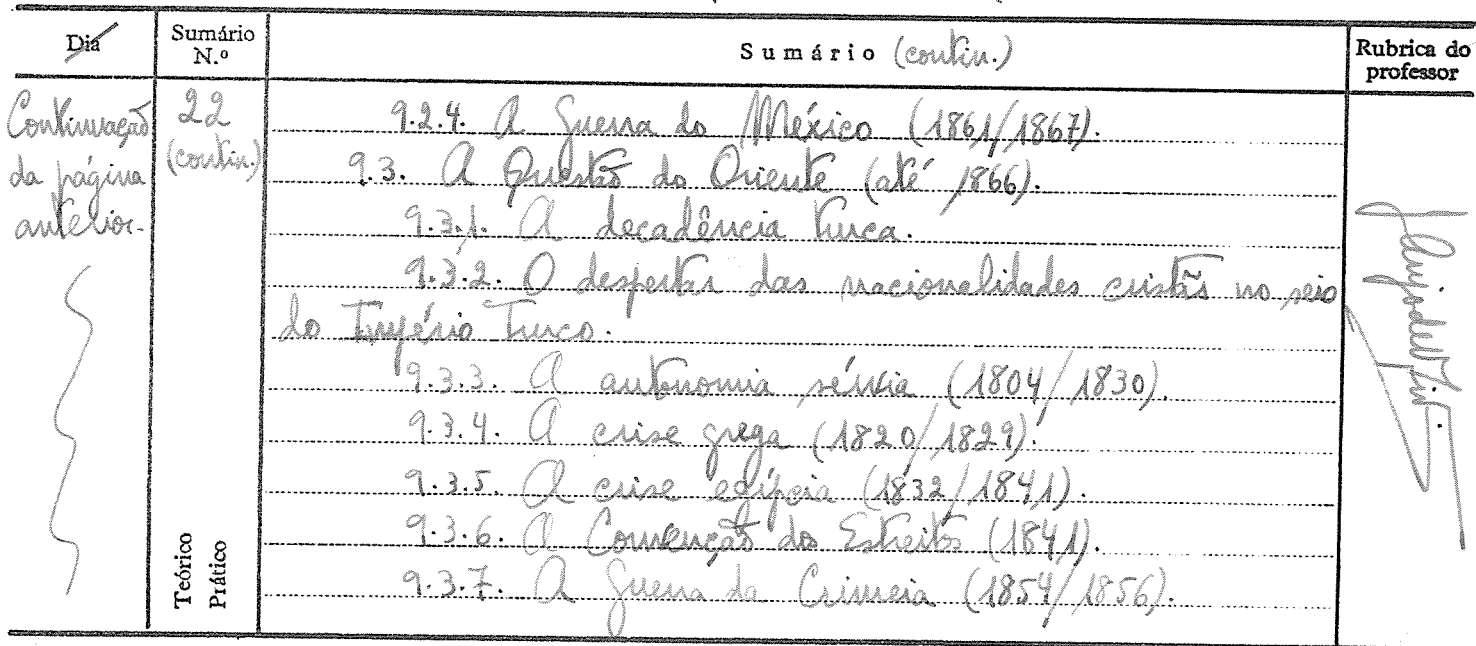 Dia
Sumário N.º
Sumário (contin.)
Rubrica do professor
Continuação da página anterior.
22 (contin.)
9.2.4. A Guerra do México (1861/1867).
9.3. A Questão do Oriente (até 1866).
9.3.1. A decadência turca.
9.3.2. O despertar das nacionalidades cristãs no seio
do Império Turco.
9.3.3. A autonomia sérvia (1804/1830).
9.3.4. A crise grega (1820/1829).
9.3.5. A crise egípcia (1832/1841).
9.3.6. A Convenção dos Estreitos (1841).
9.3.7. A Guerra da Crimeia (1854/1856).
Teórico
Prático